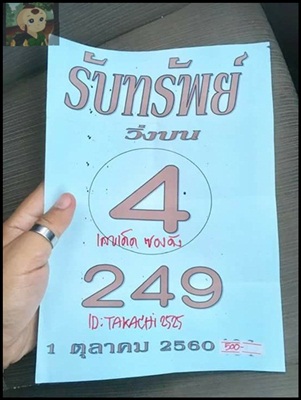 รับทรัพย์
วิ่งบน
4
เลขเด็ด ซองดัง
249
ID: TAKACHI 2525
1 ตุลาคม 2560
500-